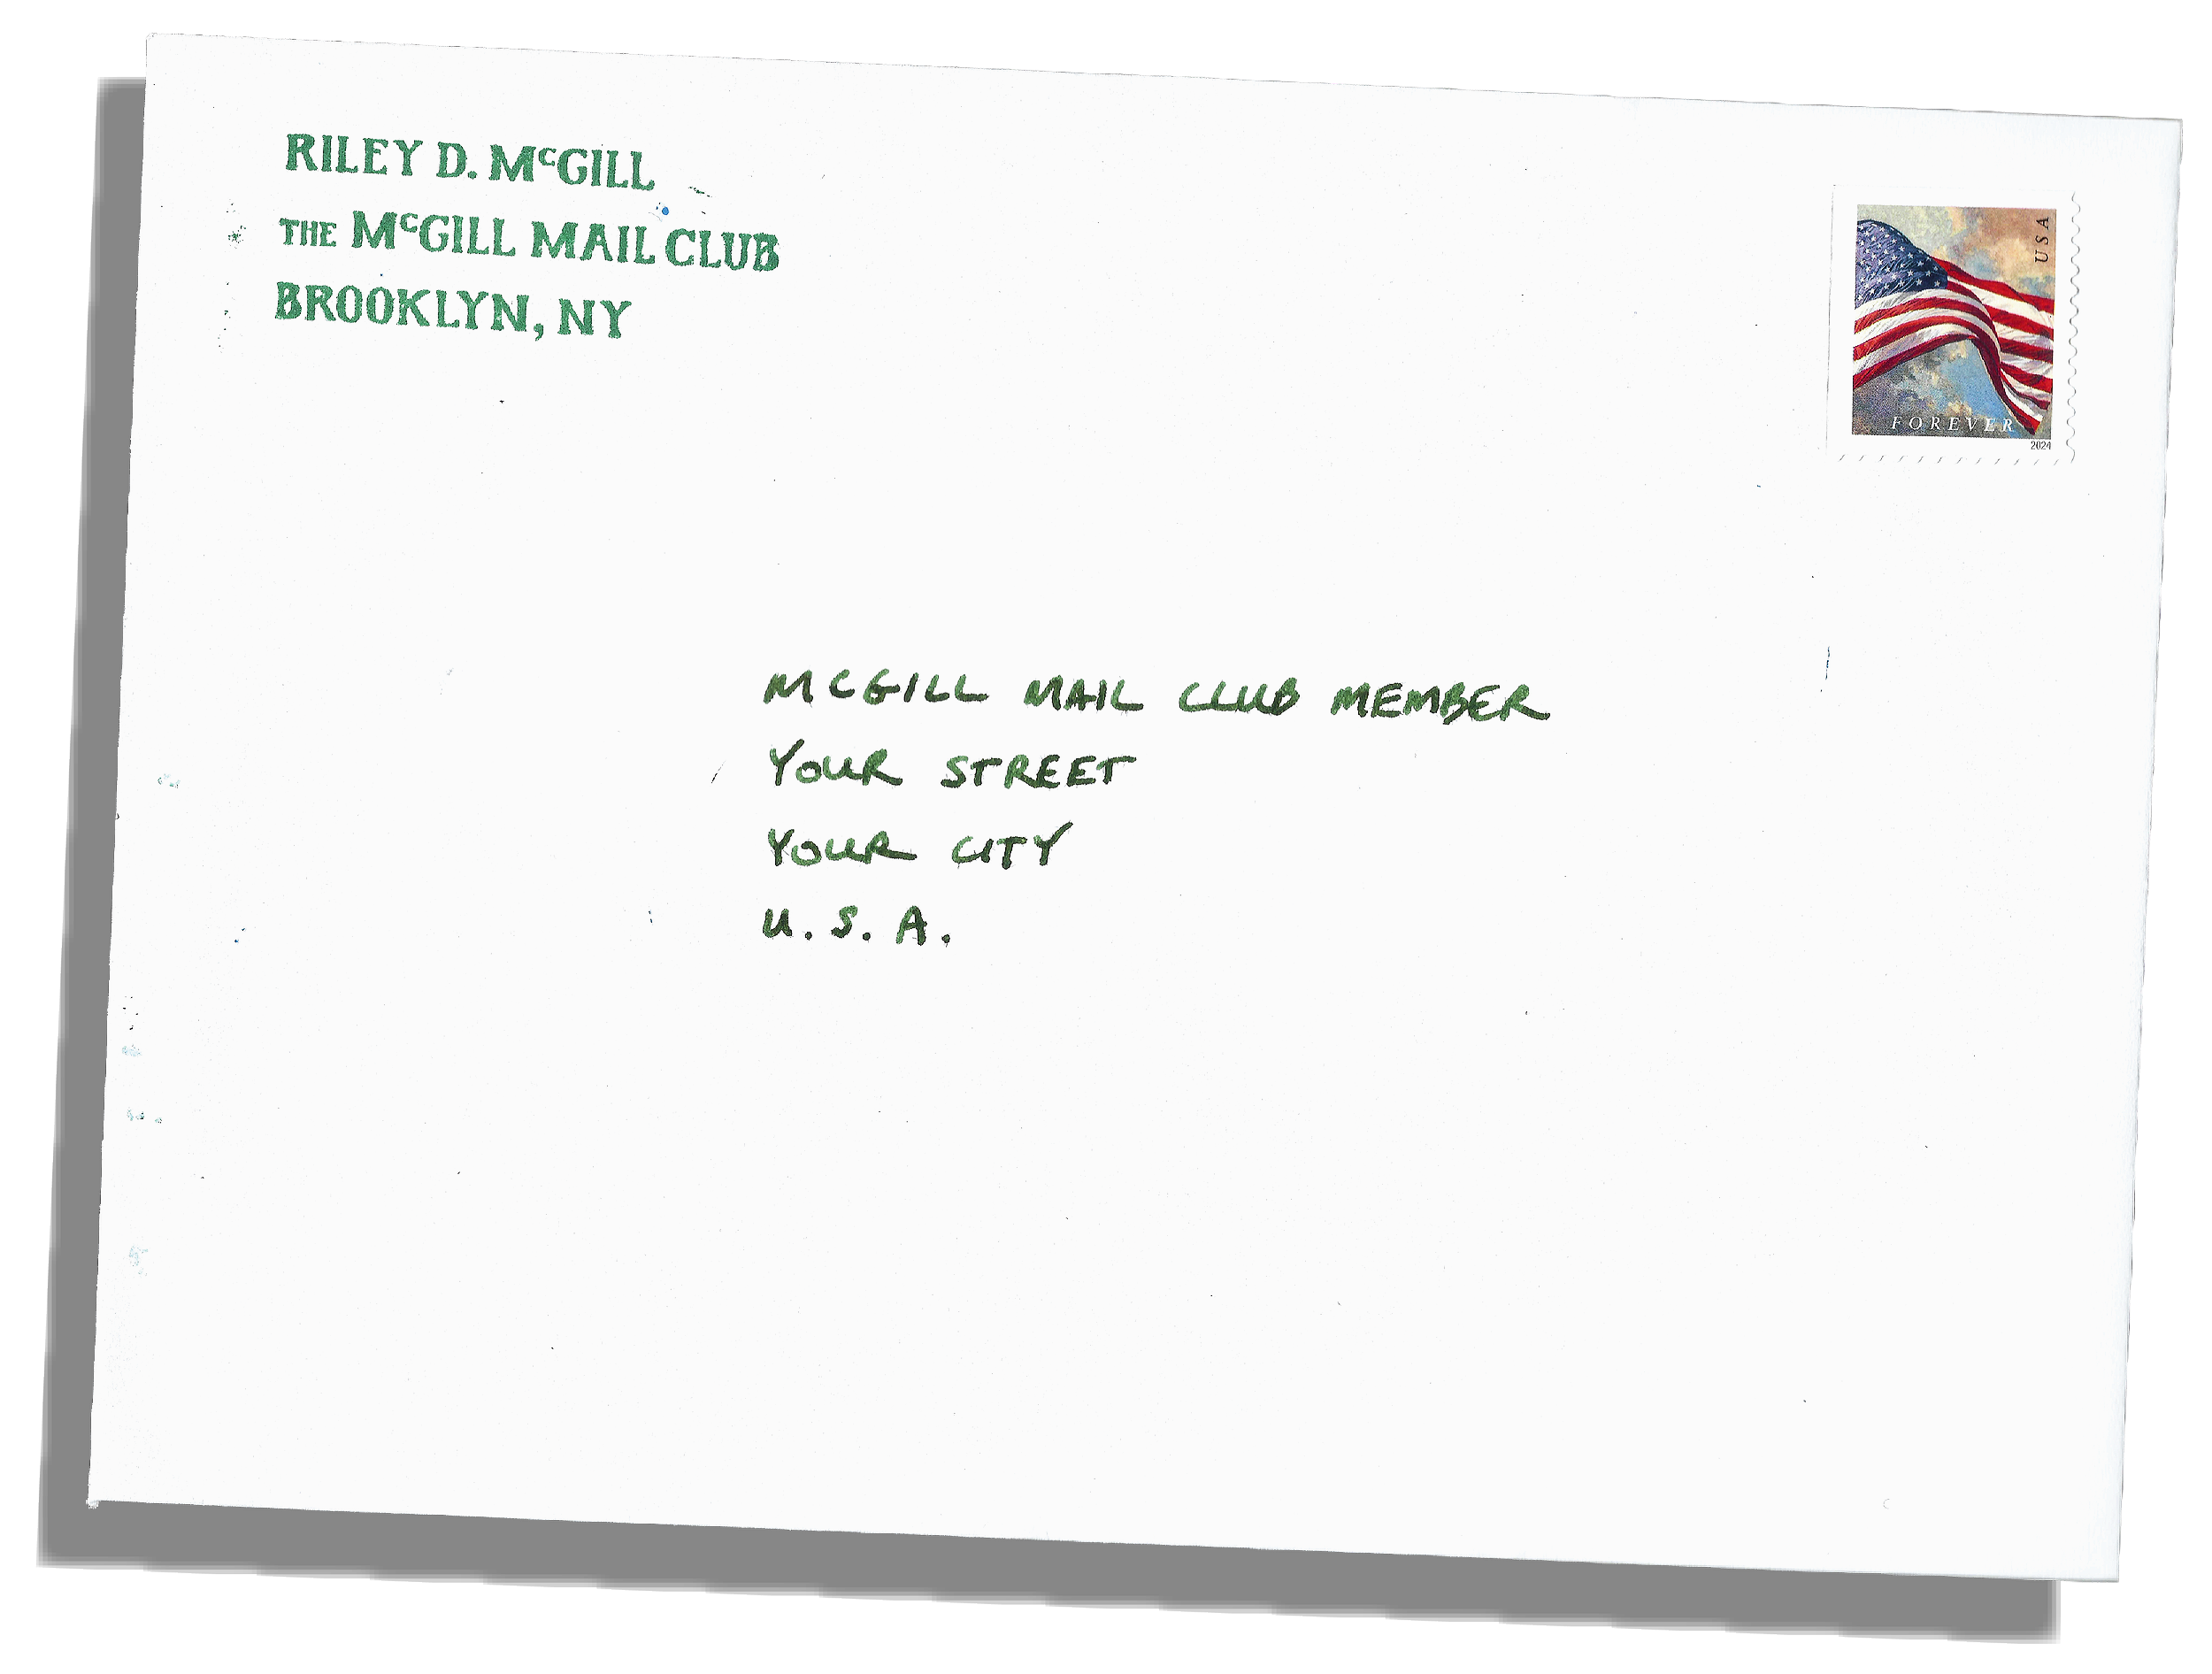 RILEY D. McGILL
THE McGILL MAIL CLUB
BROOKLYN, NY
USA
FOREVER
2024
MCGILL MAIL CLUB MEMBER
YOUR STREET
YOUR CITY
U.S.A.